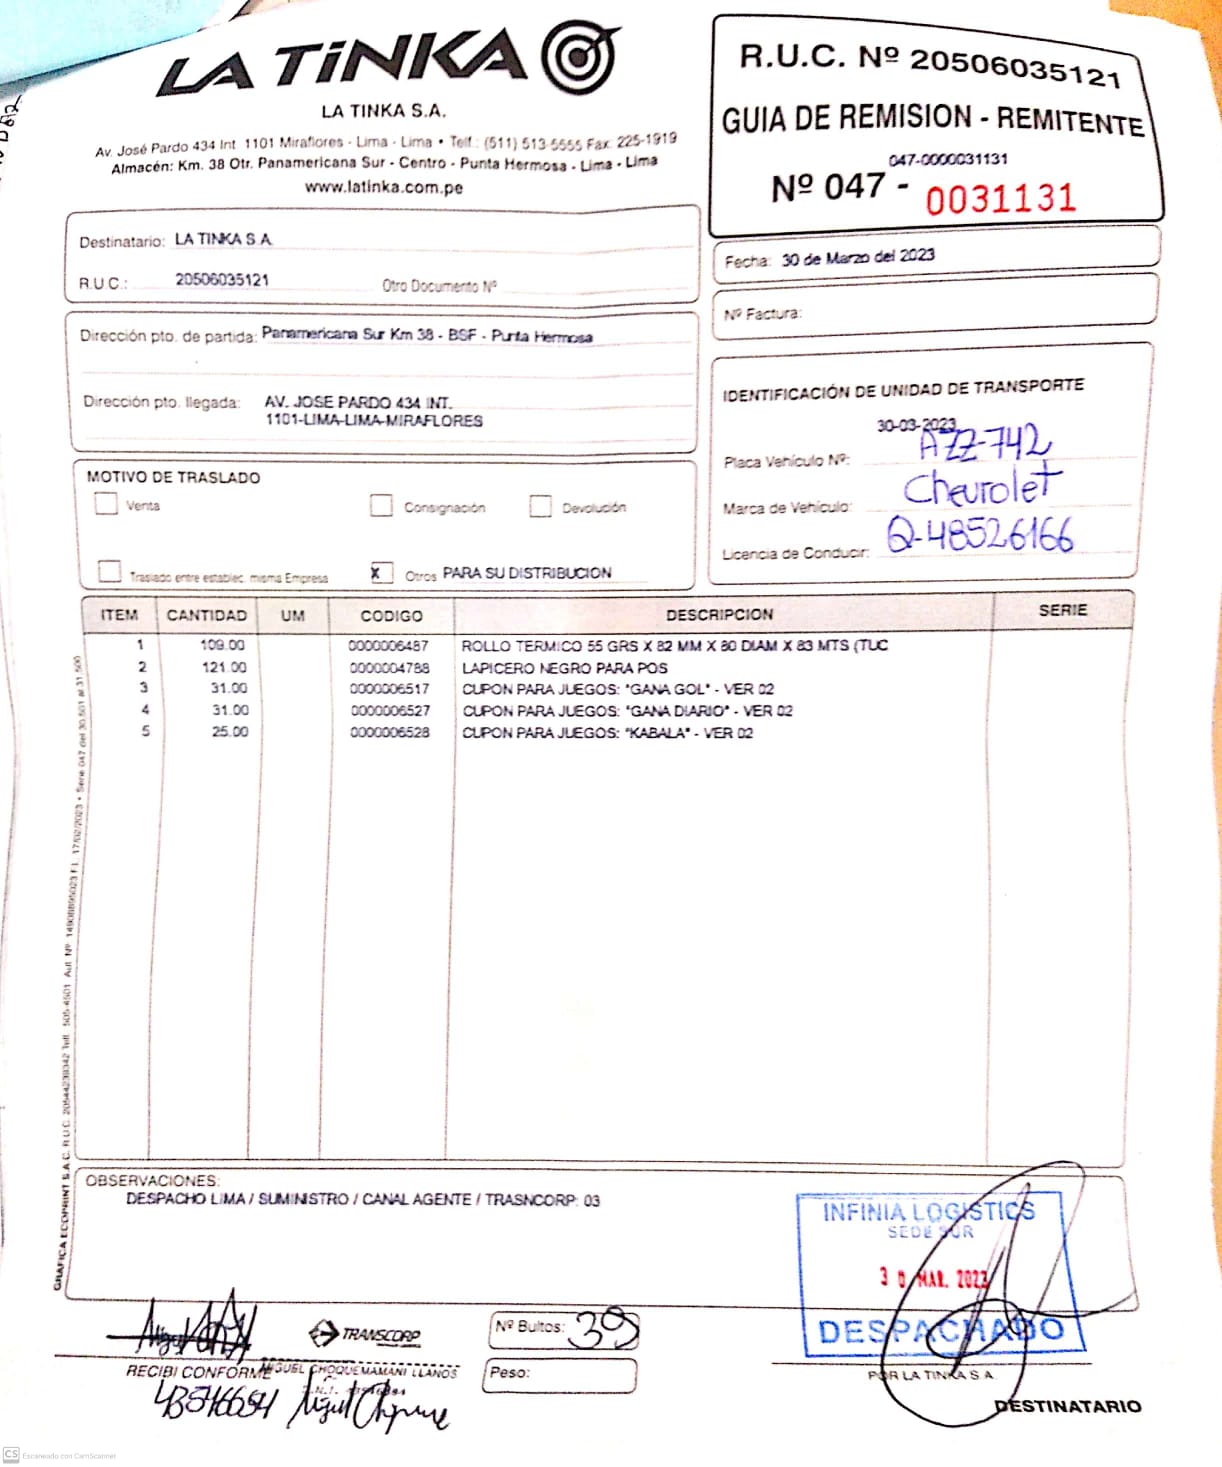 LA TiNKA
LA TINKA S.A.
Av. José Pardo 434 Int. 1101 Miraflores - Lima - Lima • Telf.: (511) 513-5555 Fax: 225-1919
Almacén: Km. 38 Otr. Panamericana Sur - Centro - Punta Hermosa - Lima - Lima
www.latinka.com.pe
R.U.C. Nº 20506035121
GUIA DE REMISION - REMITENTE
047-0000031131
Nº 047 - 0031131
Destinatario: LA TINKA S.A.
R.U.C.: 20506035121 Otro Documento Nº
Fecha: 30 de Marzo del 2023
Nº Factura:
Dirección pto. de partida: Panamericana Sur Km 38 - BSF - Punta Hermosa
Dirección pto. llegada: AV. JOSE PARDO 434 INT.
1101-LIMA-LIMA-MIRAFLORES
IDENTIFICACIÓN DE UNIDAD DE TRANSPORTE
30-03-2023
Placa Vehículo Nº: AZZ-742
Marca de Vehículo: Chevrolet
Licencia de Conducir: Q-48526166
MOTIVO DE TRASLADO
Venta Consignación Devolución
Traslado entre establec. misma Empresa X Otros PARA SU DISTRIBUCION
ITEM CANTIDAD UM CODIGO DESCRIPCION SERIE
1 109.00 0000006487 ROLLO TERMICO 55 GRS X 82 MM X 80 DIAM X 83 MTS (TUC
2 121.00 0000004788 LAPICERO NEGRO PARA POS
3 31.00 0000006517 CUPON PARA JUEGOS: "GANA GOL" - VER 02
4 31.00 0000006527 CUPON PARA JUEGOS: "GANA DIARIO" - VER 02
5 25.00 0000006528 CUPON PARA JUEGOS: "KABALA" - VER 02
GRAFICA ECOPRINT S.A.C. R.U.C. 20544239342 Telf. 505-4501 Aut. Nº 14908895023 F.I. 17/02/2023 • Serie 047 del 30,501 al 31,500
OBSERVACIONES:
DESPACHO LIMA / SUMINISTRO / CANAL AGENTE / TRASNCORP: 03
INFINIA LOGISTICS
SEDE SUR
30 MAR. 2023
DESPACHADO
TRANSCORP
Nº Bultos: 39
RECIBI CONFORME MIGUEL CHOQUEMAMANI LLANOS
Peso:
POR LA TINKA S.A.
DESTINATARIO
CS Escaneado con CamScanner